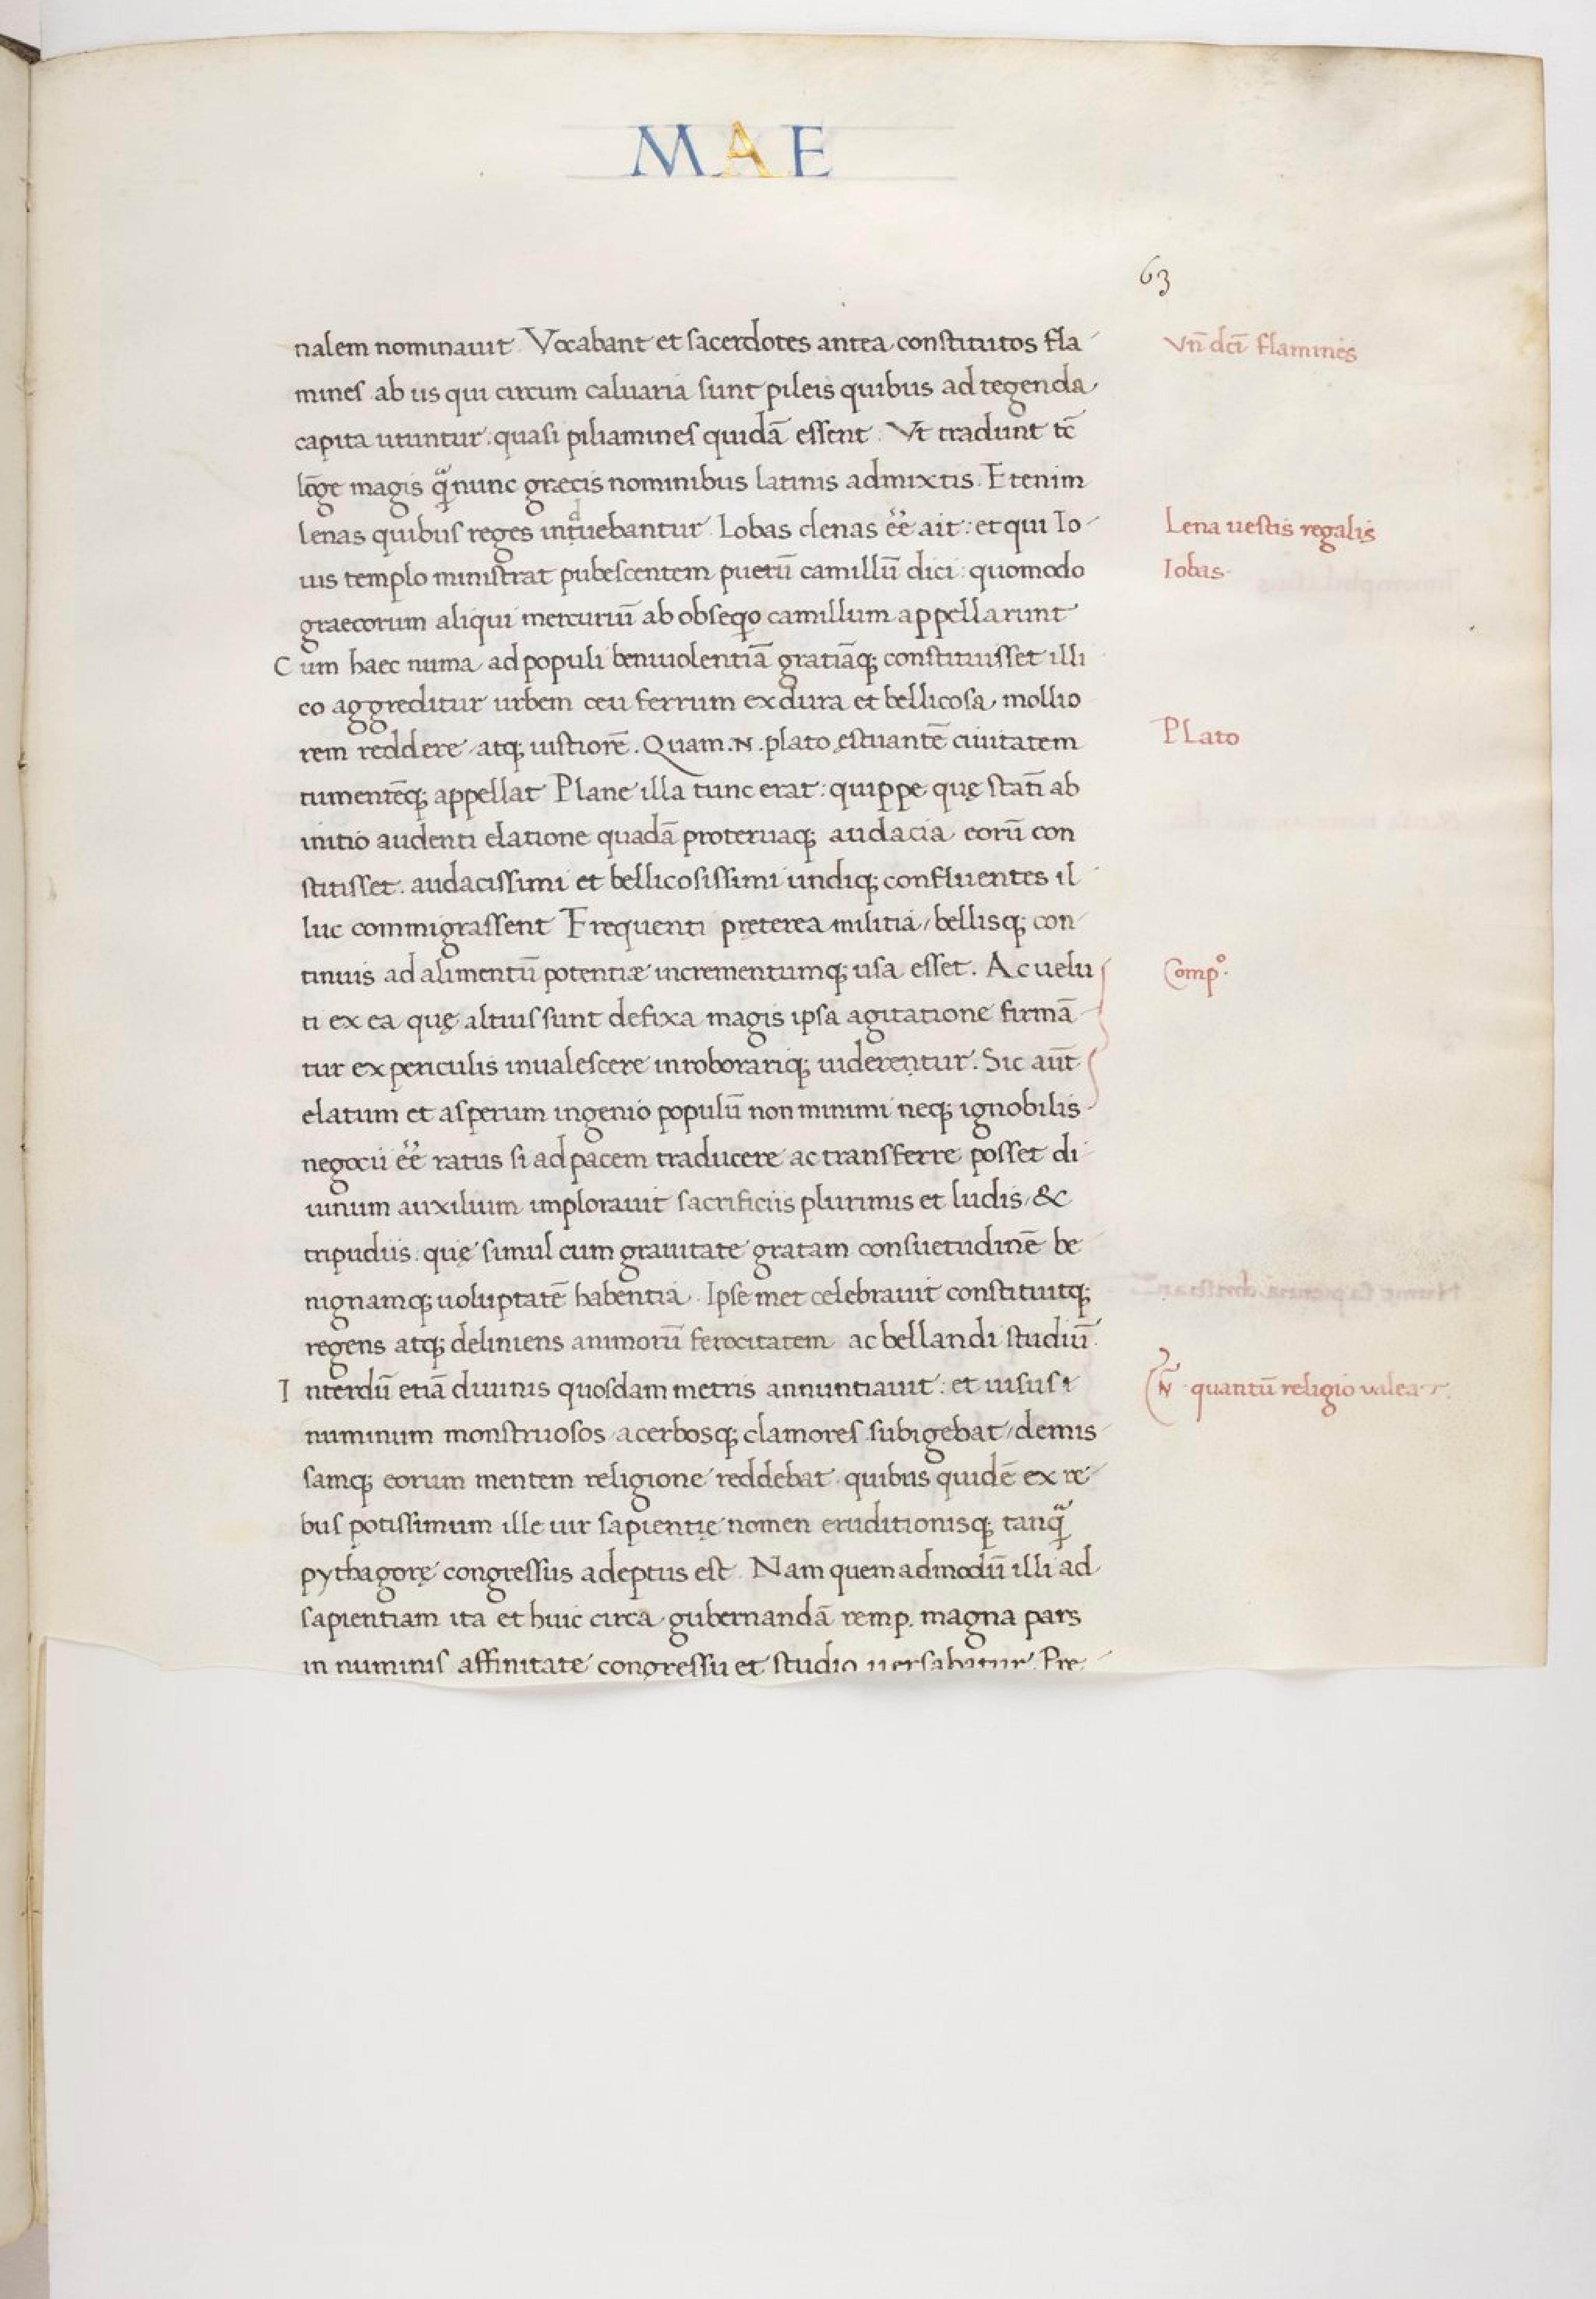 MAE
63
nalem nominauit. Vocabant et sacerdotes antea constitutos fla
Vn̄ dcī flamines
mines ab iis qui circum caluaria sunt pileis quibus ad tegenda
capita utuntur. quasi piliamines quidā essent. Vt tradunt tc̄
lōge magis q̈ nunc græcis nominibus latinis admixtis. Etenim
lenas quibus reges Iobas clenas ee᷃ ait: et qui Io
Lena uestis regalis
uis templo ministrat pubescentem puerū camillū dici: quomodo
Iobas.
graecorum aliqui mercuriū ab obseqio camillum appellarunt
Cum haec numa ad populi beniuolentiā gratiāq; constituisset illi
co aggreditur urbem ceu ferrum ex dura et bellicosa mollio
rem reddere atq; iustiorē. Quam .N. plato ęstuantē ciuitatem
Plato
tumentēq; appellat Plane illa tunc erat: quippe quę statī ab
initio audenti elatione quadā proteruaq; audacia eorū con
stitisset. audacissimi et bellicosissimi undiq; confluentes il
luc commigrassent Frequenti pręterea militia, bellisq; con
tinuis ad alimentū potentiæ incrementumq; usa esset. Ac uelu
Compº.
ti ex ea quę altius sunt defixa magis ipsa agitatione firmā
tur ex periculis inualescere inroborariq; uiderentur. Sic aūt
elatum et asperum ingenio populū non minimi neq; ignobilis
negocii ee᷃ ratus si ad pacem traducere ac transferre posset di
uinum auxilium implorauit sacrificiis plurimis et ludis, &
tripudiis. quę simul cum grauitate gratam consuetudinē be
nignamq; uoluptatē habentia. Ipse met celebrauit constituitq;
regens atq; deliniens animorū ferocitatem ac bellandi studiū.
Interdū etiā diuinis quosdam metris annuntiauit: et uisus
N̄ quantū religio valeat.
numinum monstruosos acerbosq; clamores subigebat, demis
samq; eorum mentem religione reddebat. quibus quidē ex re
bus potissimum ille uir sapientię nomen eruditionisq; tanq̈
pythagorę congressus adeptus est. Nam quemadmodū illi ad
sapientiam ita et huic circa gubernandā remp. magna pars
in numinis affinitate congressu et studio uersabitur. Pre